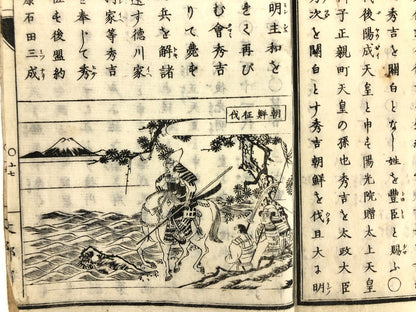 を關白となし姓を豊臣と賜ふ〇
代後陽成天皇と申も陽光院贈太上天皇
子正親町天皇の孫也秀吉を太政大臣
次を關白とす秀吉朝鮮を伐且大に明
明主和を
をく再び
む會秀吉
りて薨も
兵を解諸
す徳川家
家等秀吉
を奉じて秀
位も後盟約
原石田三成
朝鮮征伐
〇十七